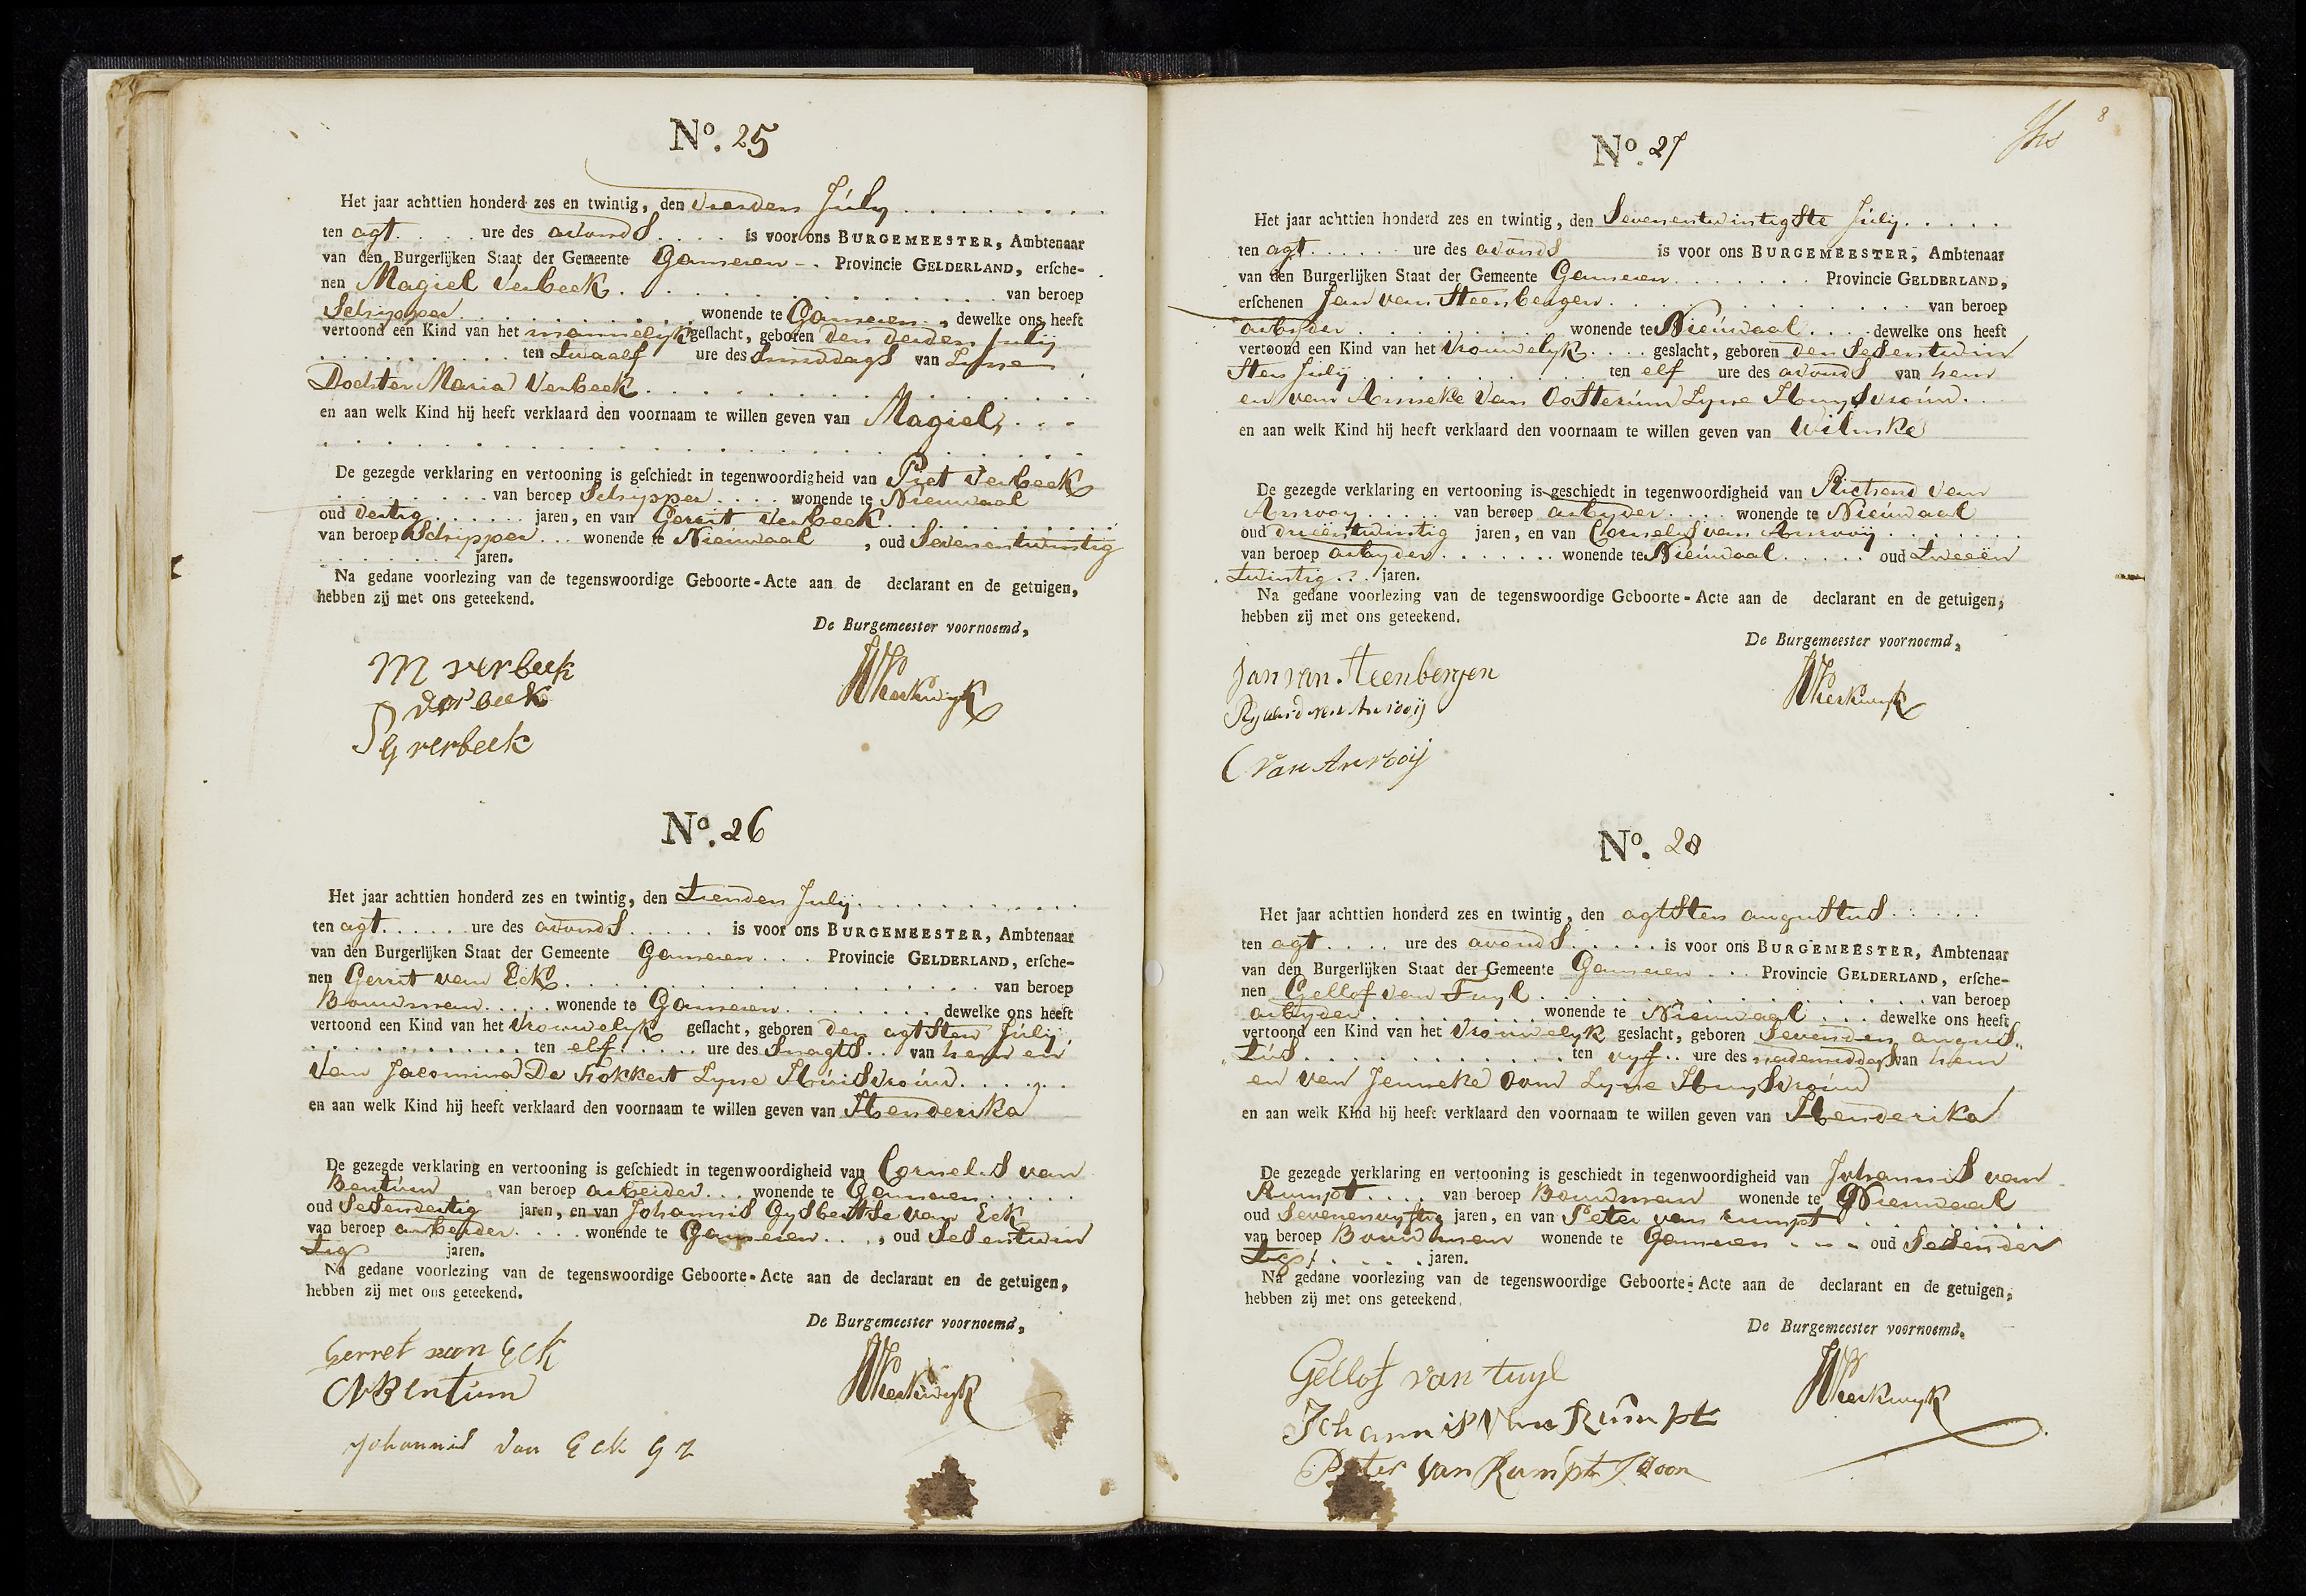 No. 25
Het jaar achttien honderd zes en twintig, den vierden July
ten agt ure des avonds is voor ons BURGEMEESTER, Ambtenaar
van den Burgerlijken Staat der Gemeente Gameren Provincie GELDERLAND, erſche-
nen Magiel Verbeek van beroep
Schipper wonende te Gameren, dewelke ons heeft
vertoond een Kind van het mannelyk geſlacht, geboren den derden July
ten twaalf ure des smiddags van Syne
Dochter Maria Verbeek
en aan welk Kind hij heeft verklaard den voornaam te willen geven van Magiel,
De gezegde verklaring en vertooning is geſchiedt in tegenwoordigheid van Piet Verbeek
van beroep Schipper wonende te Nieuwaal
oud dertig jaren, en van Gerrit Verbeek
van beroep Schipper wonende te Nieuwaal, oud Sevenentwintig
jaren.
Na gedane voorlezing van de tegenswoordige Geboorte-Acte aan de declarant en de getuigen,
hebben zij met ons geteekend.
De Burgemeester voornoemd,
M verbeek
P verbeek
G verbeek
No. 26
Het jaar achttien honderd zes en twintig, den tienden July
ten agt ure des avonds is voor ons BURGEMEESTER, Ambtenaar
van den Burgerlijken Staat der Gemeente Gameren Provincie GELDERLAND, erſche-
nen Gerrit van Eck van beroep
Bouwman wonende te Gameren dewelke ons heeft
vertoond een Kind van het vrouwelyk geſlacht, geboren den agtsten July
ten elf ure des snagts van hem en
van Jacomina De Fokkert Syne Huisvrouw
en aan welk Kind hij heeft verklaard den voornaam te willen geven van Henderika
De gezegde verklaring en vertooning is geſchiedt in tegenwoordigheid van Cornelis van
Bentum van beroep arbeider wonende te Gameren
oud Sesendertig jaren, en van Johannis Gysbertse van Eck
van beroep arbeider wonende te Gameren, oud Sesentwin
tig jaren.
Na gedane voorlezing van de tegenswoordige Geboorte-Acte aan de declarant en de getuigen,
hebben zij met ons geteekend.
De Burgemeester voornoemd,
Gerret van Eck
CVBentum
Johannis van Eck G Z
8
No. 27
Het jaar achttien honderd zes en twintig, den Sevenentwintigste July
ten agt ure des avonds is voor ons BURGEMEESTER, Ambtenaar
van den Burgerlijken Staat der Gemeente Gameren Provincie GELDERLAND,
erſchenen Jan van Steenbergen van beroep
arbyder wonende te Nieuwaal dewelke ons heeft
vertoond een Kind van het vrouwelyk geslacht, geboren den Sesentwin
sten July ten elf ure des avonds van hem
en van Anneke van Oosterum Syne Huysvrouw
en aan welk Kind hij heeft verklaard den voornaam te willen geven van Wilmke
De gezegde verklaring en vertooning is geschiedt in tegenwoordigheid van van
Anrooy van beroep arbyder wonende te Nieuwaal
oud drieëntwintig jaren, en van Cornelys van Anrooij
van beroep arbyder wonende te Nieuwaal oud tweeën
twintig jaren.
Na gedane voorlezing van de tegenswoordige Geboorte-Acte aan de declarant en de getuigen,
hebben zij met ons geteekend.
De Burgemeester voornoemd,
Jan van Steenbergen
van Anrooij
C van Anrooij
No. 28
Het jaar achttien honderd zes en twintig, den agtsten augustus
ten agt ure des avonds is voor ons BURGEMEESTER, Ambtenaar
van den Burgerlijken Staat der Gemeente Gameren Provincie GELDERLAND, erſche-
nen Gellof van Tuyl van beroep
arbyder wonende te Nieuwaal dewelke ons heeft
vertoond een Kind van het vrouwelyk geslacht, geboren Sevenden augus
tus ten vyf ure des nademiddags van hem
en van Jenneke Syne Huysvrouw
en aan welk Kind hij heeft verklaard den voornaam te willen geven van Henderika
De gezegde verklaring en vertooning is geschiedt in tegenwoordigheid van Johannis van
Rumpt van beroep Bouwman wonende te Nieuwaal
oud Sevenenvyftig jaren, en van Peter van rumpt
van beroep Bouwman wonende te Gameren oud Sesender
tig jaren.
Na gedane voorlezing van de tegenswoordige Geboorte-Acte aan de declarant en de getuigen,
hebben zij met ons geteekend.
De Burgemeester voornoemd,
Gellof van tuyl
Johannis van Rumpt
Peter van Rumpt Zoon